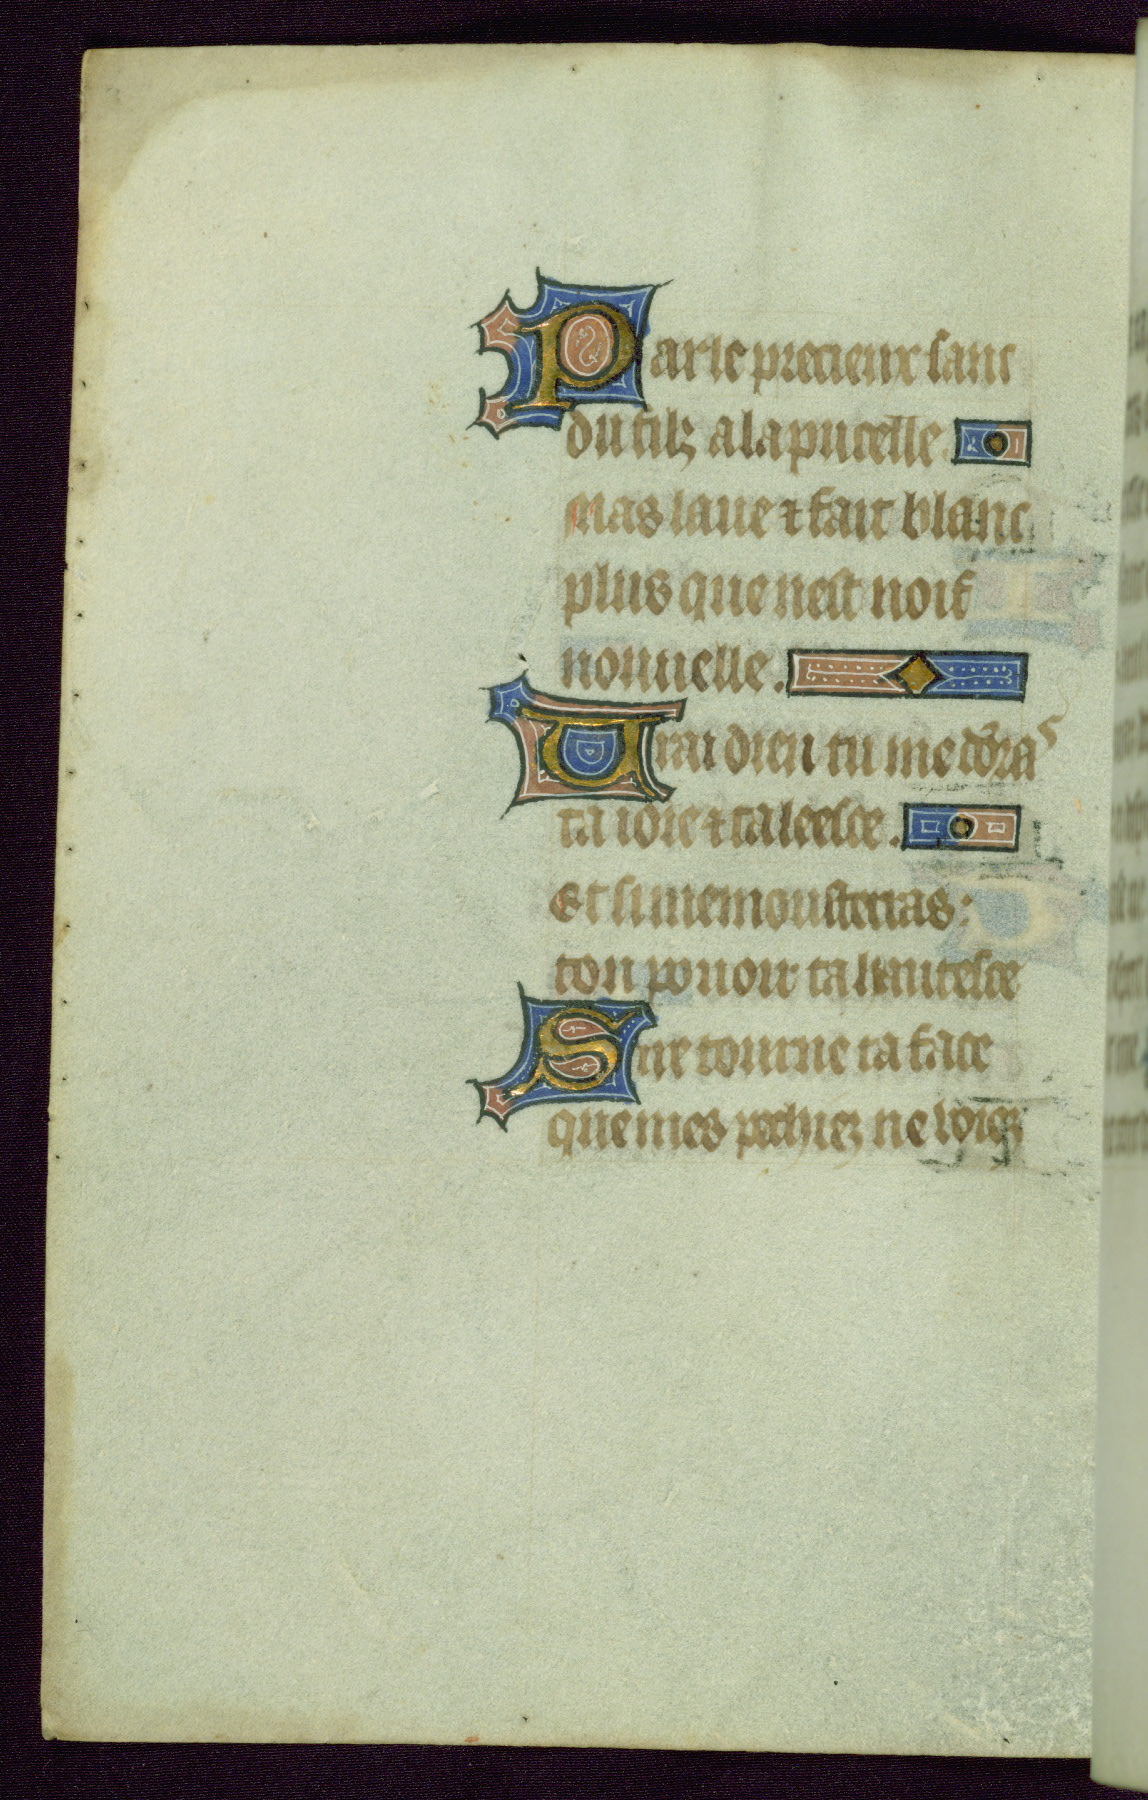 Par le precieux sanc
du filz a la pucelle.
Mas laue ⁊ fait blanc
plus que nest noif
nouuelle.
Urai dieu tu me dōras
ta ioie ⁊ ta leesce.
Et si me mousterras:
ton pouoir ta hautesce
Sire tourne ta face
que mes pechiez ne voiez